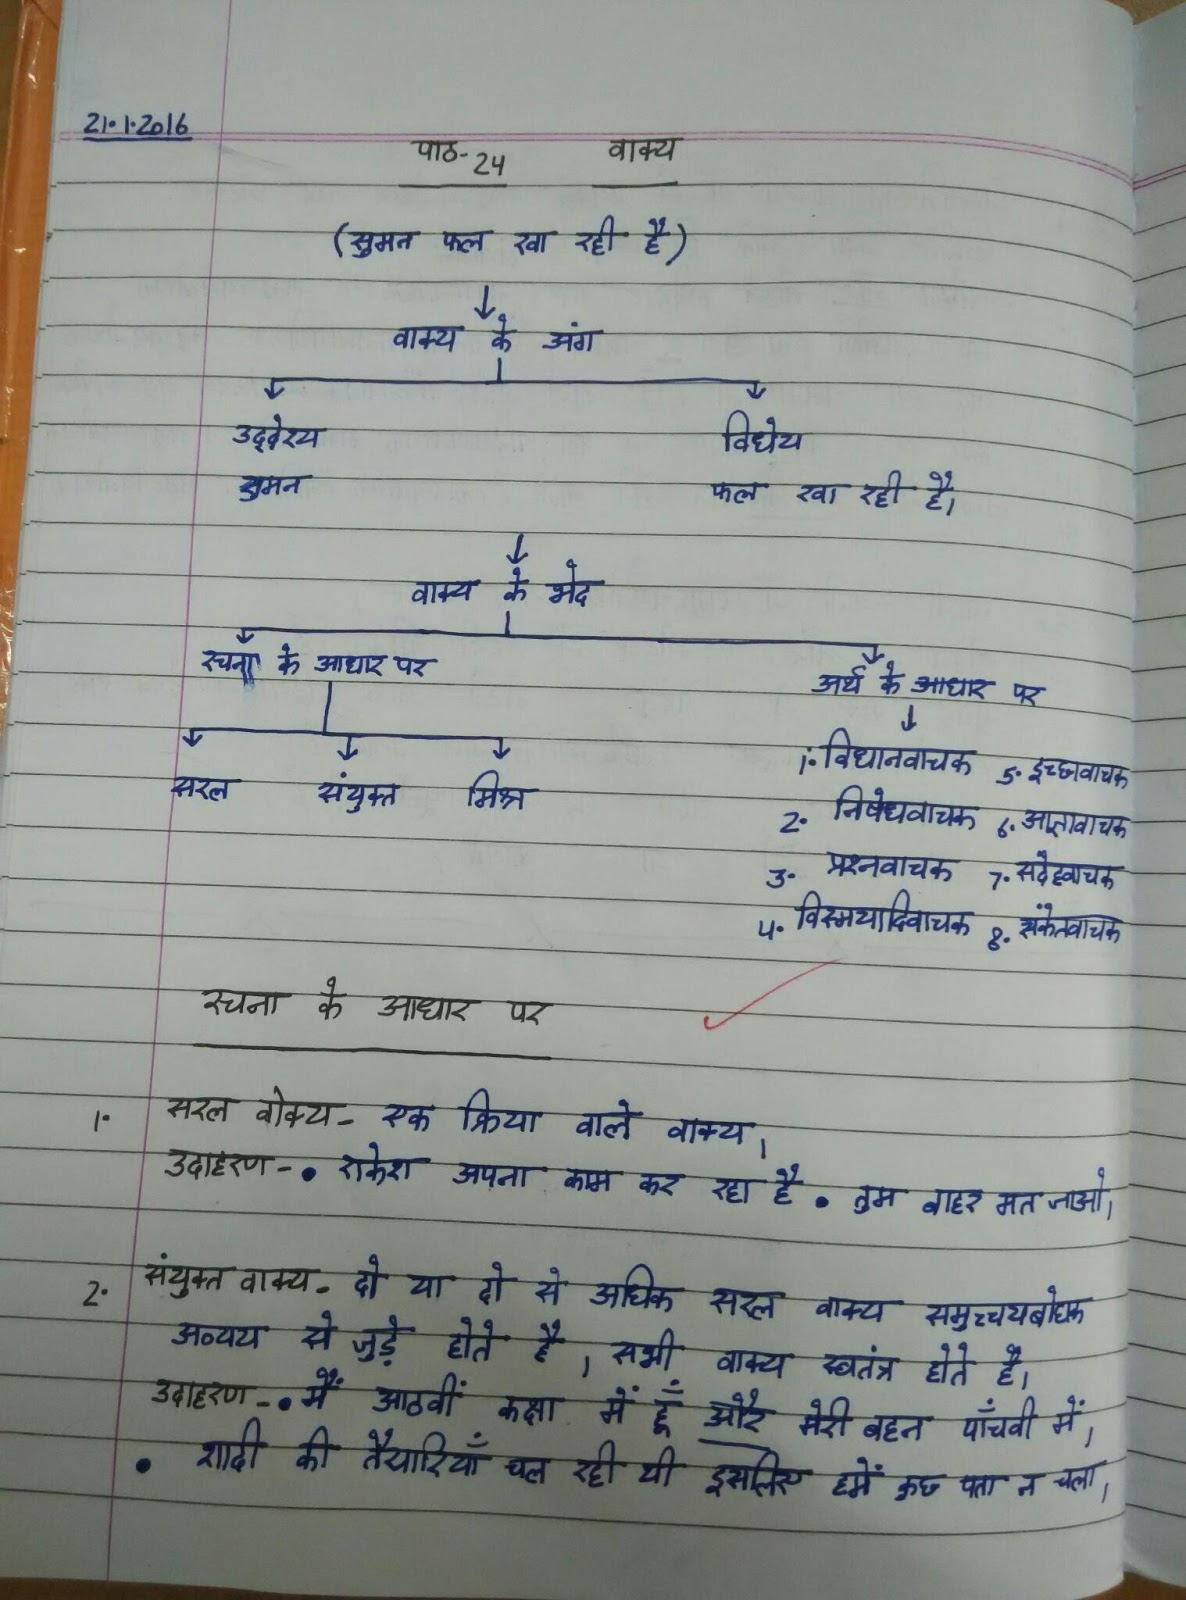 21.1.2016
पाठ-24 वाक्य
(सुमन फल खा रही है)
वाक्य के अंग
उद्देश्य विधेय
सुमन फल खा रही है।
वाक्य के भेद
रचना के आधार पर अर्थ के आधार पर
1. विधानवाचक 5. इच्छावाचक
सरल संयुक्त मिश्र
2. निषेधवाचक 6. आज्ञावाचक
3. प्रश्नवाचक 7. संदेहवाचक
4. विस्मयादिवाचक 8. संकेतवाचक
रचना के आधार पर
1. सरल वाक्य - एक क्रिया वाले वाक्य।
उदाहरण - • राकेश अपना काम कर रहा है • तुम बाहर मत जाओ।
2. संयुक्त वाक्य - दो या दो से अधिक सरल वाक्य समुच्चयबोधक
अव्यय से जुड़े होते है। सभी वाक्य स्वतंत्र होते है।
उदाहरण - • मैं आठवीं कक्षा में हूँ और मेरी बहन पाँचवी में।
• शादी की तैयारियाँ चल रही थी इसलिए हमें कुछ पता न चला।